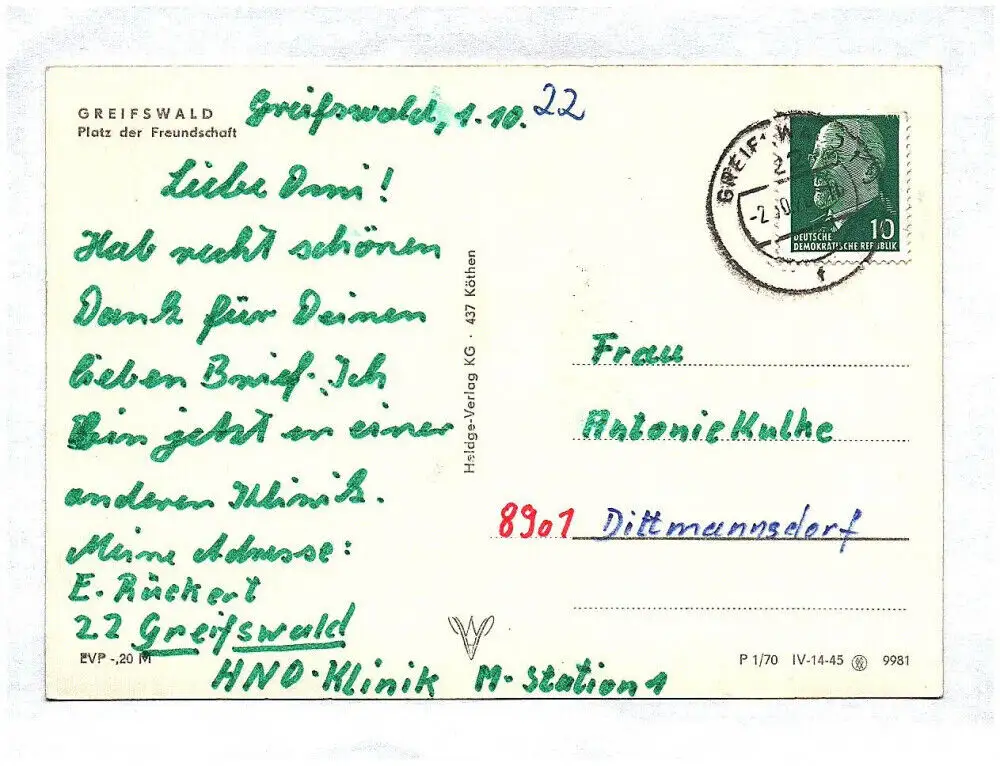 GREIFSWALD
Platz der Freundschaft
Greifswald, 1.10. 22
Liebe Omi!
Hab recht schönen
Dank für Deinen
lieben Brief. Ich
bin jetzt in einer
anderen Klinik.
Meine Adresse:
E. Rückert
22 Greifswald
HNO-Klinik M-Station 1
EVP -,20 M
Heldge-Verlag KG · 437 Köthen
GREIFSWALD
10
DEUTSCHE
DEMOKRATISCHE REPUBLIK
Frau
Antonie Kulke
8901 Dittmannsdorf
P 1/70 IV-14-45 9981